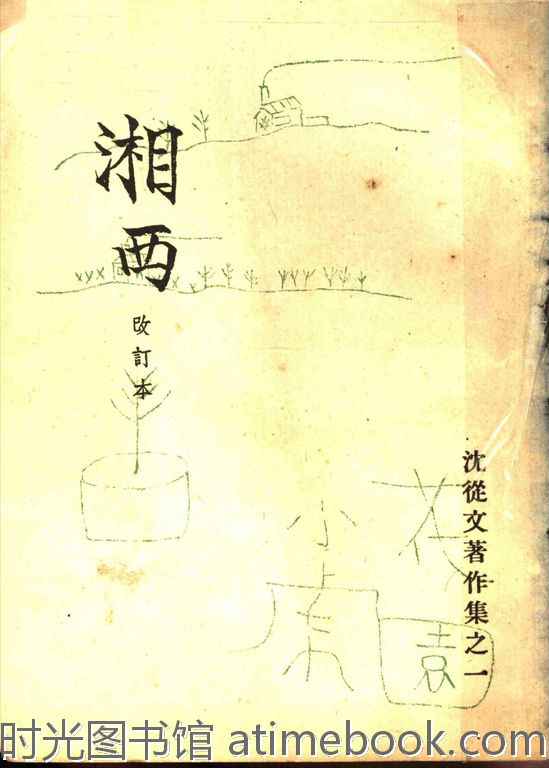 湘西
改訂本
沈從文著作集之一
小
花園
时光图书馆 atimebook.com